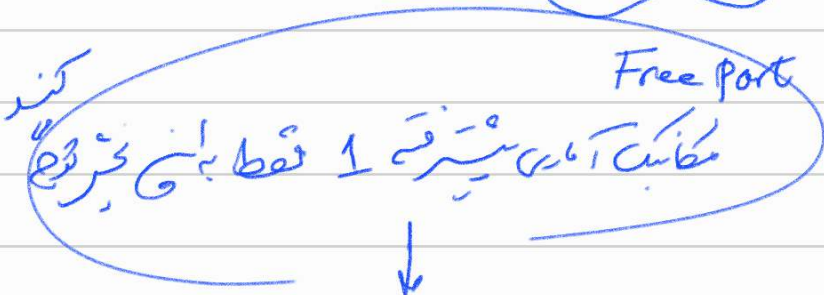 Free Part
مکانیک آماری پیشرفته 1 فقط به این بخش توجه
کنید